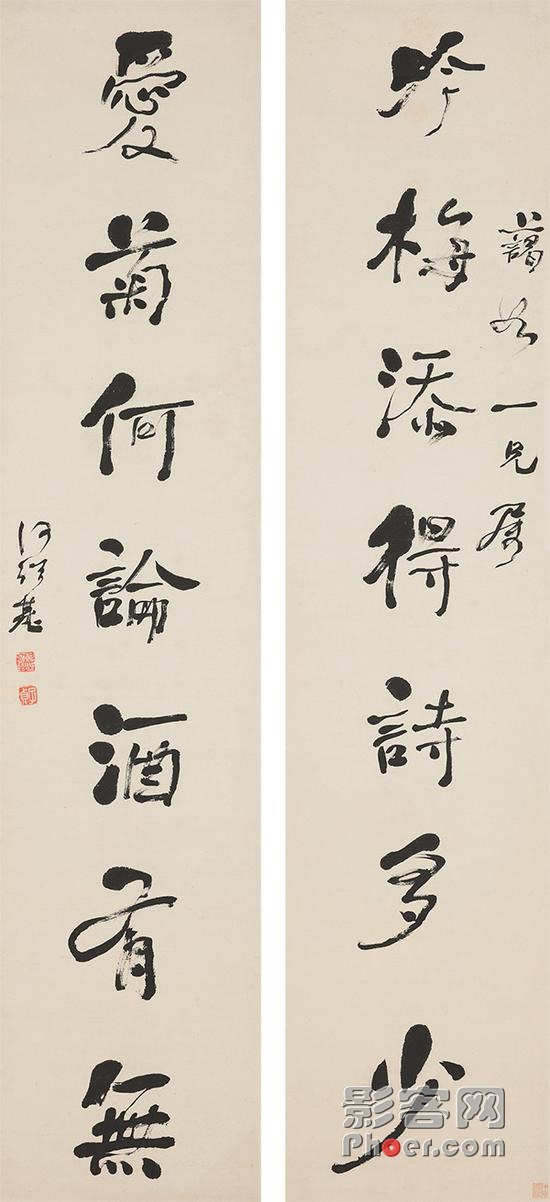 吟梅添得詩多少
一兄属
愛菊何論酒有無
何紹基
影客网
Phoer.com